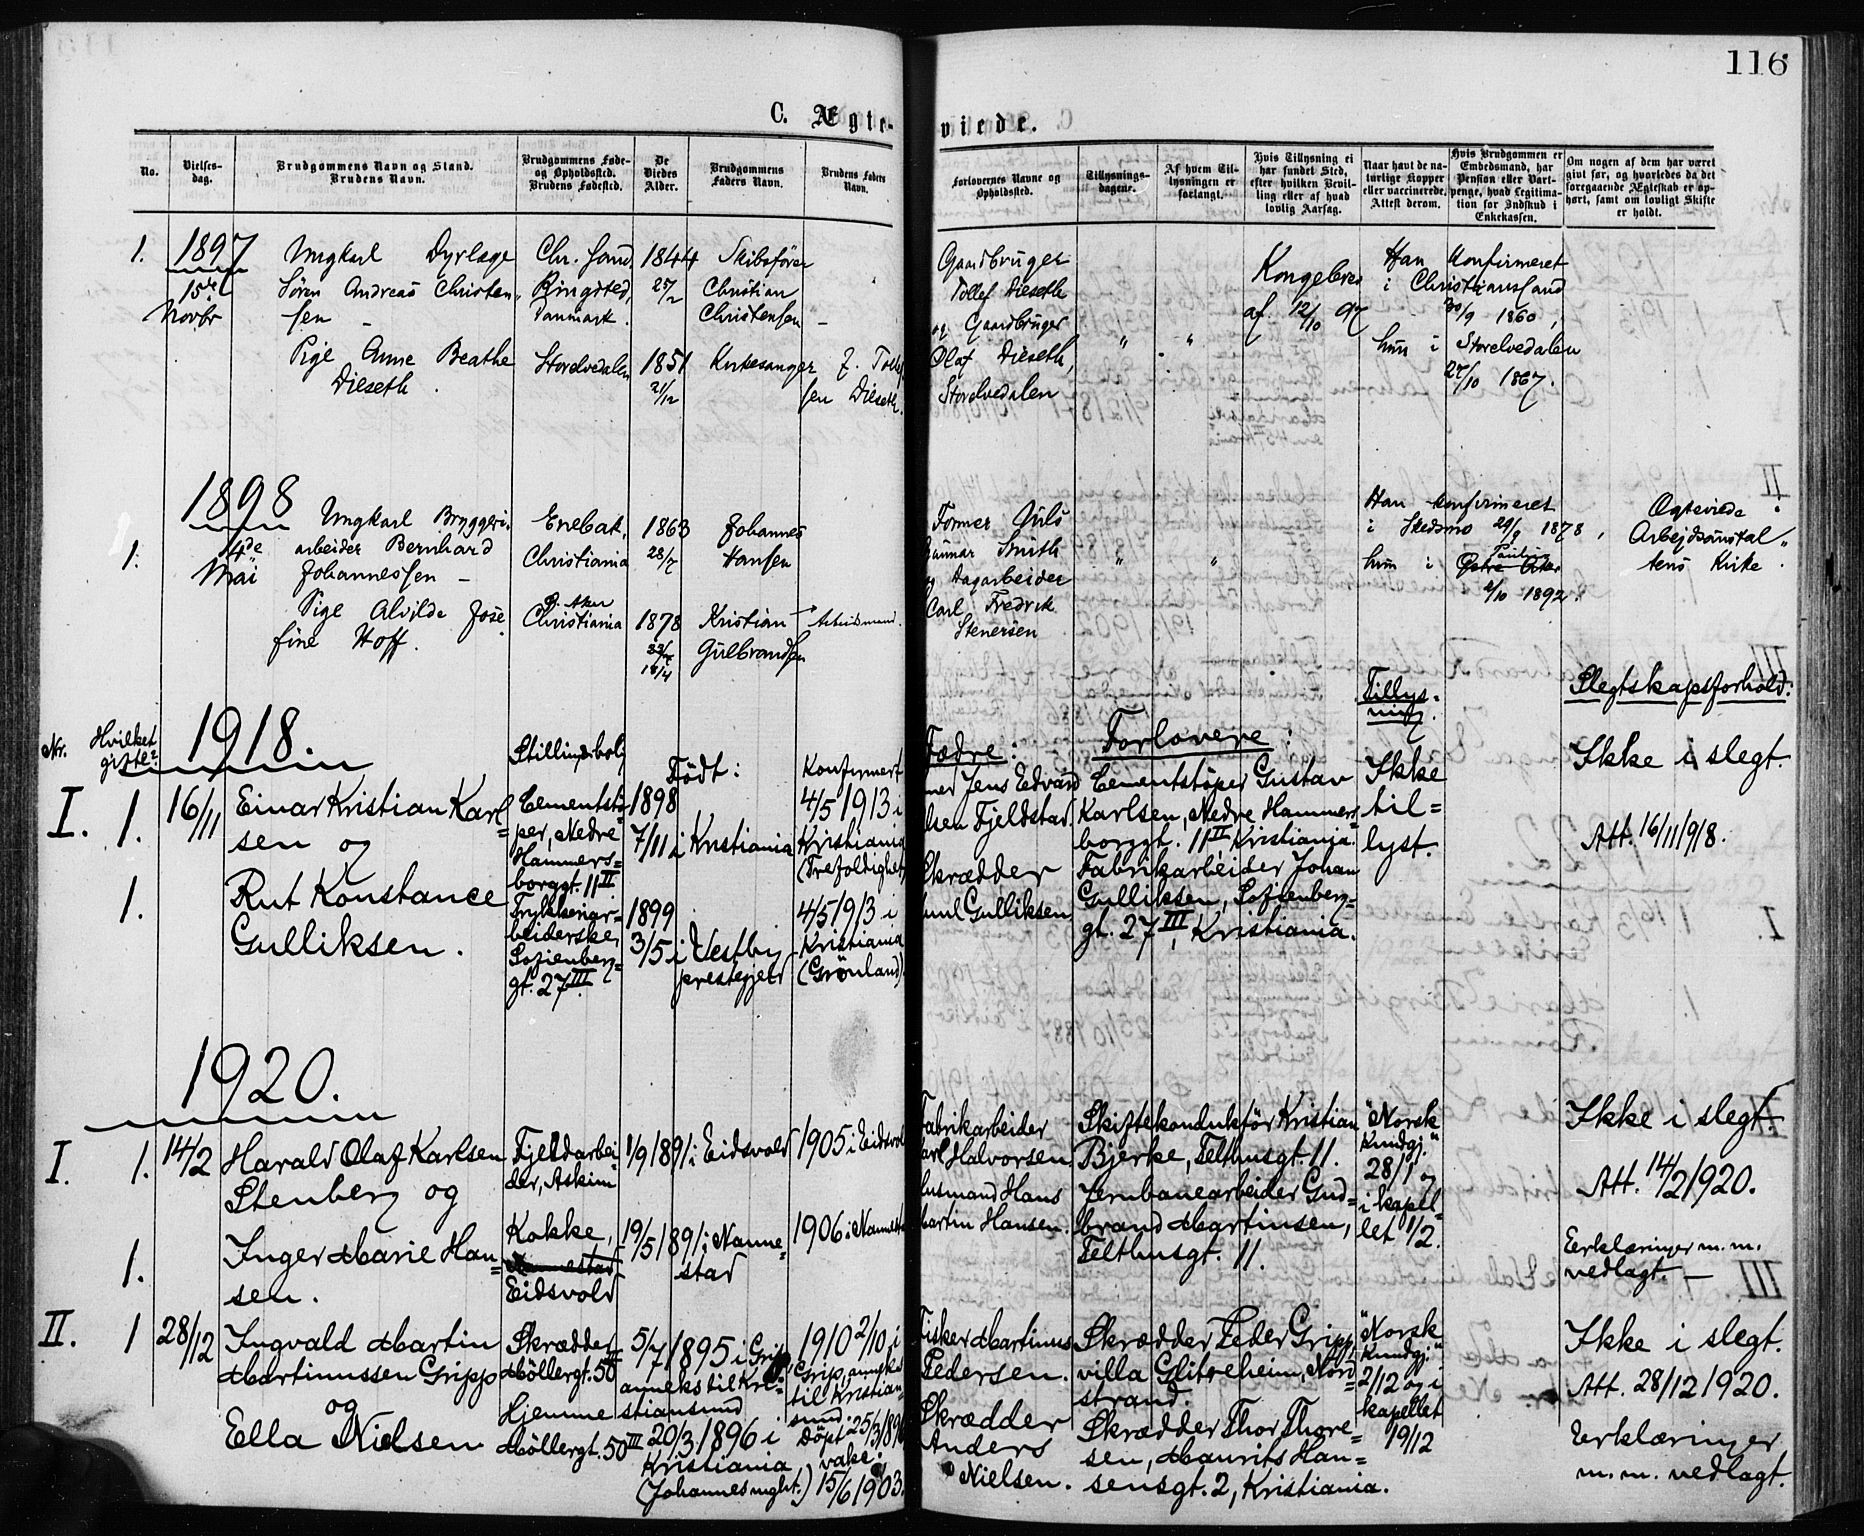 116
C. Ægte- viede.
No.
Vielses-
dag.
Brudgommens Navn og Stand.
Brudens Navn.
Brudgommens Føde-
og Opholdssted.
Brudens Fødested.
De
Viedes
Alder.
Brudgommens
Faders Navn.
Brudens Faders
Navn.
Forlovernes Navne og
Opholdssted.
Tillysnings-
dagene.
Af hvem Til-
lysningen er
forlangt.
Hvis Tillysning ei
har fundet Sted,
efter hvilken Bevil-
ling eller af hvad
lovlig Aarsag.
Naar havt de na-
turlige Kopper
eller vaccinerede.
Attest derom.
Hvis Brudgommen er
Embedsmand, har
Pension eller Vart-
penge, hvad Legitima-
tion for Indskud i
Enkekassen.
Om nogen af dem har været
gift før, og hvorledes da det
foregaaende Ægteskab er op-
hørt, samt om lovligt Skifte
er holdt.
1. 1897
15de
Novbr
Ungkarl Dyrlæge
Søren Andreas Christen
sen
Chr. sand
Ringsted,
Danmark.
1844
25/2
Skibsfører
Christian
Christensen
Pige Anne Beathe
Dieseth.
Storelvedalen
1851
21/12
Kirkesanger
sen Dieseth.
Gaardbruger
Tollef Dieseth
og Gaardbruger
Olaf Dieseth,
Storelvedalen
" "
Kongebrev
af 12/10 97
Han konfirmeret
i Christianssand
30/9 1860,
hun i Storelvedalen
27/10 1867.
1898
1. 4de
Mai
Ungkarl Bryggeri
arbeider Bernhard
Johannessen
Enebak.
Christiania
1863
28/7
Johannes
Hansen
Pige Alvilde Jose
fine Hoff.
Ø. Aker
Christiania
1878
18/4
Kristian
Gulbrandsen
Arbeidsmand.
Former Nils
Gunnar Smith
og Dagarbeider
Carl Fredrik
Stenersen
" "
Han konfirmeret
i Skedsmo 29/9 1878,
hun i Paulus
Østre Aker
2/10 1892.
Ogteviede
Arbejdsanstal"
tens Kirke.
1918.
Nr.
Hvilket
gifte?
Födt:
Konfirmert
Fædre:
Forlovere:
Tillys-
ning.
Slegtskapsforhold:
I. 1. 16/11
Einar Kristian Karl=
sen og
Cementstö
per, Nedre
Hammers=
borggt. 11 II
1898
7/11 i Kristiania
4/5 1913 i
Kristiania
(Trefoldighet)
Jens Edvard
Fjeldstad.
Cementstöper Gustav
Karlsen, Nedre Hammers=
borggt. 11 II Kristiania.
Ikke
til=
lyst.
Ikke i slegt.
Att. 16/11 1918.
1. Rut Konstance
Gulliksen.
Trykkeriar-
beiderske,
Sofienberg=
gt. 27 III.
1899
3/5 i Vestby
prestegjeld
4/5 1913 i
Kristiania
(Grönland).
Skrædder
Gulliksen
Fabrikarbeider Johan
Gulliksen, Sofienberg=
gt. 27 III, Kristiania.
1920.
I. 1. 14/2
Harald Olaf Karlsen
Stenberg og
Fjeldarbei
der, Askim
1/9 1891 i Eidsvold
1905 i Eidsvold
Fabrikarbeider
Karl Halvorsen.
Skiftekonduktör Kristian
Bjerke, Telthusgt. 11.
"Norsk
Kundgj."
28/1 og
i kapel=
let 1/2.
Ikke i slegt.
Att. 14/2 1920.
1. Inger Marie Han=
sen.
Kokke,
Nannestad
Eidsvold
19/5 1891 i Nanne=
stad
1906 i Nannestad
Husmand Hans
Martin Hansen.
Jernbanearbeider Gud=
brand Martinsen,
Telthusgt. 11.
Erklæringer m.m.
vedlagt.
II. 1 28/12
Ingvald Martin
Martinussen Gripp
og
Skrædder
Möllergt. 50
5/7 1895 i Grip
anneks til Kri=
stiansund
1910 2/10 i
Grip, anneks
til Kristian
sund.
Fisker Martinus
Pedersen.
Skrædder Peder Gripp,
villa Glitreheim, Nord=
strand.
"Norsk
Kundgj."
2/12 og i
kapellet
19/12
Ikke i slegt.
Att. 28/12 1920.
Ella Nielsen
Hjemme
Möllergt. 50 III
20/3 1896 i
Kristiania
(Johannes mght.)
Döpt 25/3 1896
vakc.
15/6 1903.
Skrædder
Anders
Nielsen.
Skrædder Thor Thore=
sen, Maurits Han=
sensgt. 2, Kristiania.
Erklæringer
m.m. vedlagt.